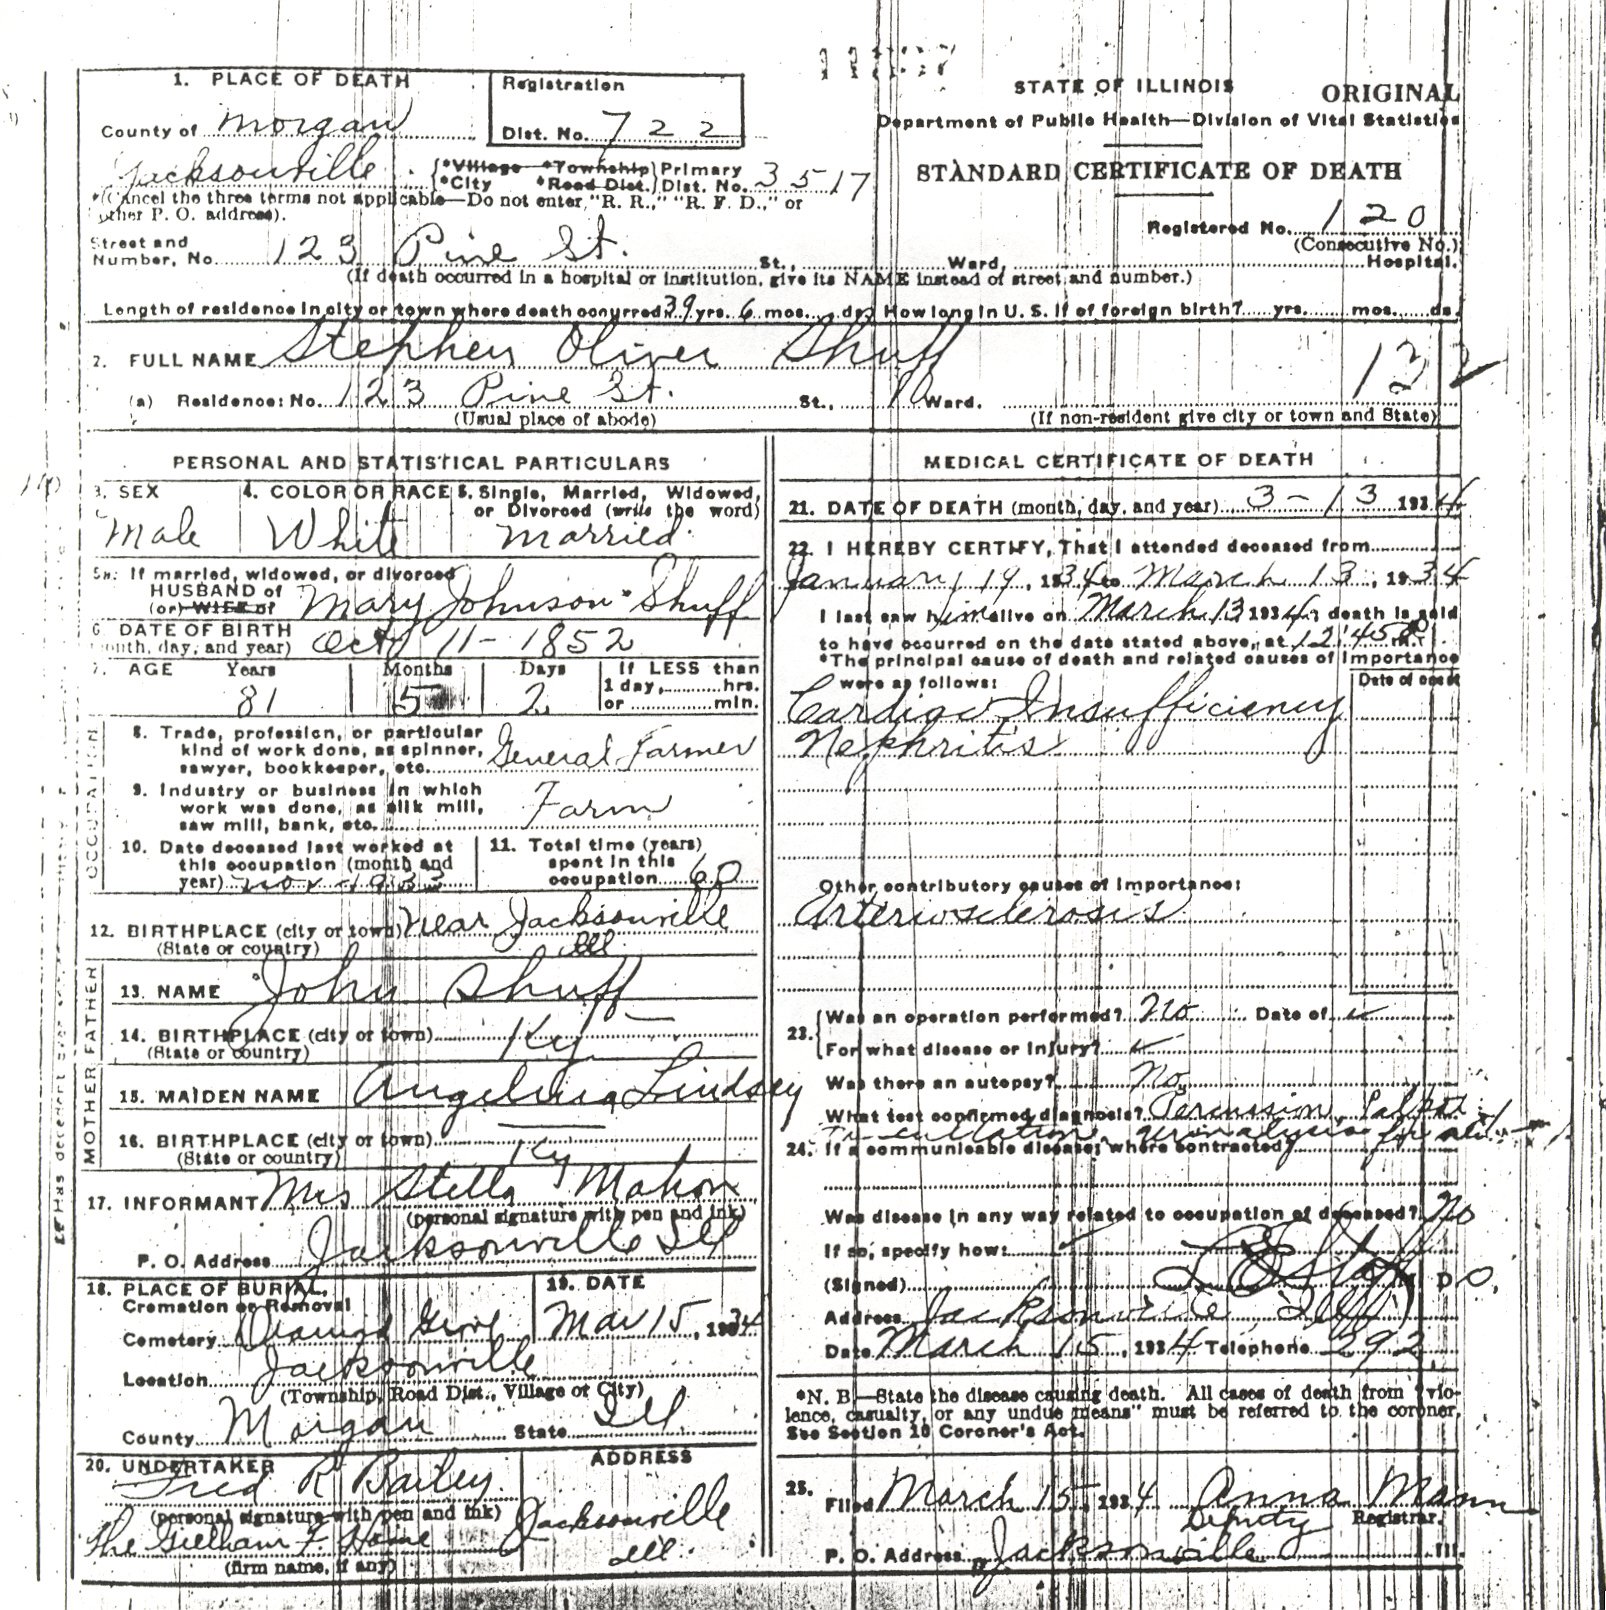 1. PLACE OF DEATH
Registration
Dist. No. 722
County of Morgan
Jacksonville
*Village *Township
*City *Road Dist.
Primary
Dist. No. 3517
*(Cancel the three terms not applicable—Do not enter "R. R.," "R. F. D.," or
other P. O. address).
STATE OF ILLINOIS
ORIGINAL
Department of Public Health—Division of Vital Statistics
STANDARD CERTIFICATE OF DEATH
Registered No. 120
(Consecutive No.)
Street and
Number, No. 123 Pine St. St., Ward, Hospital.
(If death occurred in a hospital or institution, give its NAME instead of street and number.)
Length of residence in city or town where death occurred 39 yrs. 6 mos. ds. How long in U. S. if of foreign birth? yrs. mos. ds.
2. FULL NAME Stephen Oliver Shuff
132
(a) Residence: No. 123 Pine St. St., Ward.
(Usual place of abode)
(If non-resident give city or town and State)
PERSONAL AND STATISTICAL PARTICULARS
3. SEX
Male
4. COLOR OR RACE
White
5. Single, Married, Widowed,
or Divorced (write the word)
Married
5a. If married, widowed, or divorced
HUSBAND of
(or) WIFE of
Mary Johnson Shuff
6. DATE OF BIRTH
(month, day, and year) Oct 11 - 1852
7. AGE Years Months Days If LESS than
1 day, hrs.
or min.
81 5 2
OCCUPATION
8. Trade, profession, or particular
kind of work done, as spinner,
sawyer, bookkeeper, etc. General Farmer
9. Industry or business in which
work was done, as silk mill,
saw mill, bank, etc. Farm
10. Date deceased last worked at
this occupation (month and
year) Nov - 1933
11. Total time (years)
spent in this
occupation 60
12. BIRTHPLACE (city or town) Near Jacksonville
(State or country) Ill
FATHER
13. NAME John Shuff
14. BIRTHPLACE (city or town)
(State or country) Ky
MOTHER
15. MAIDEN NAME Angelina Lindsey
16. BIRTHPLACE (city or town)
(State or country) Ky
17. INFORMANT Mrs Stella Mahon
(personal signature with pen and ink)
P. O. Address Jacksonville Ill
18. PLACE OF BURIAL,
Cremation or Removal
Cemetery Diamond Grove
19. DATE
Mar 15, 1934
Location Jacksonville
(Township, Road Dist., Village or City)
County Morgan State Ill
20. UNDERTAKER
Fred R Bailey
(personal signature with pen and ink)
The Gillham F. Home
(firm name, if any)
ADDRESS
Jacksonville
Ill.
MEDICAL CERTIFICATE OF DEATH
21. DATE OF DEATH (month, day, and year) 3 - 13 1934
22. I HEREBY CERTIFY, That I attended deceased from
January 19, 1934 to March 13, 1934
I last saw him alive on March 13 1934; death is said
to have occurred on the date stated above, at 12:45 m.
*The principal cause of death and related causes of importance
were as follows:
Date of onset
Cardiac Insufficiency
Nephritis
Other contributory causes of importance:
Arteriosclerosis
23. Was an operation performed? No Date of
For what disease or injury?
Was there an autopsy? No
What test confirmed diagnosis? Percussion,
urinalysis for
24. If a communicable disease; where contracted?
Was disease in any way related to occupation of deceased? No
If so, specify how:
(Signed) D O.
Address Jacksonville Ill
Date March 15, 1934 Telephone 292
*N. B.—State the disease causing death. All cases of death from "vio-
lence, casualty, or any undue means" must be referred to the coroner.
See Section 10 Coroner's Act.
25. Filed March 15, 1934 Anna Mann
Deputy Registrar.
P. O. Address Jacksonville Ill.